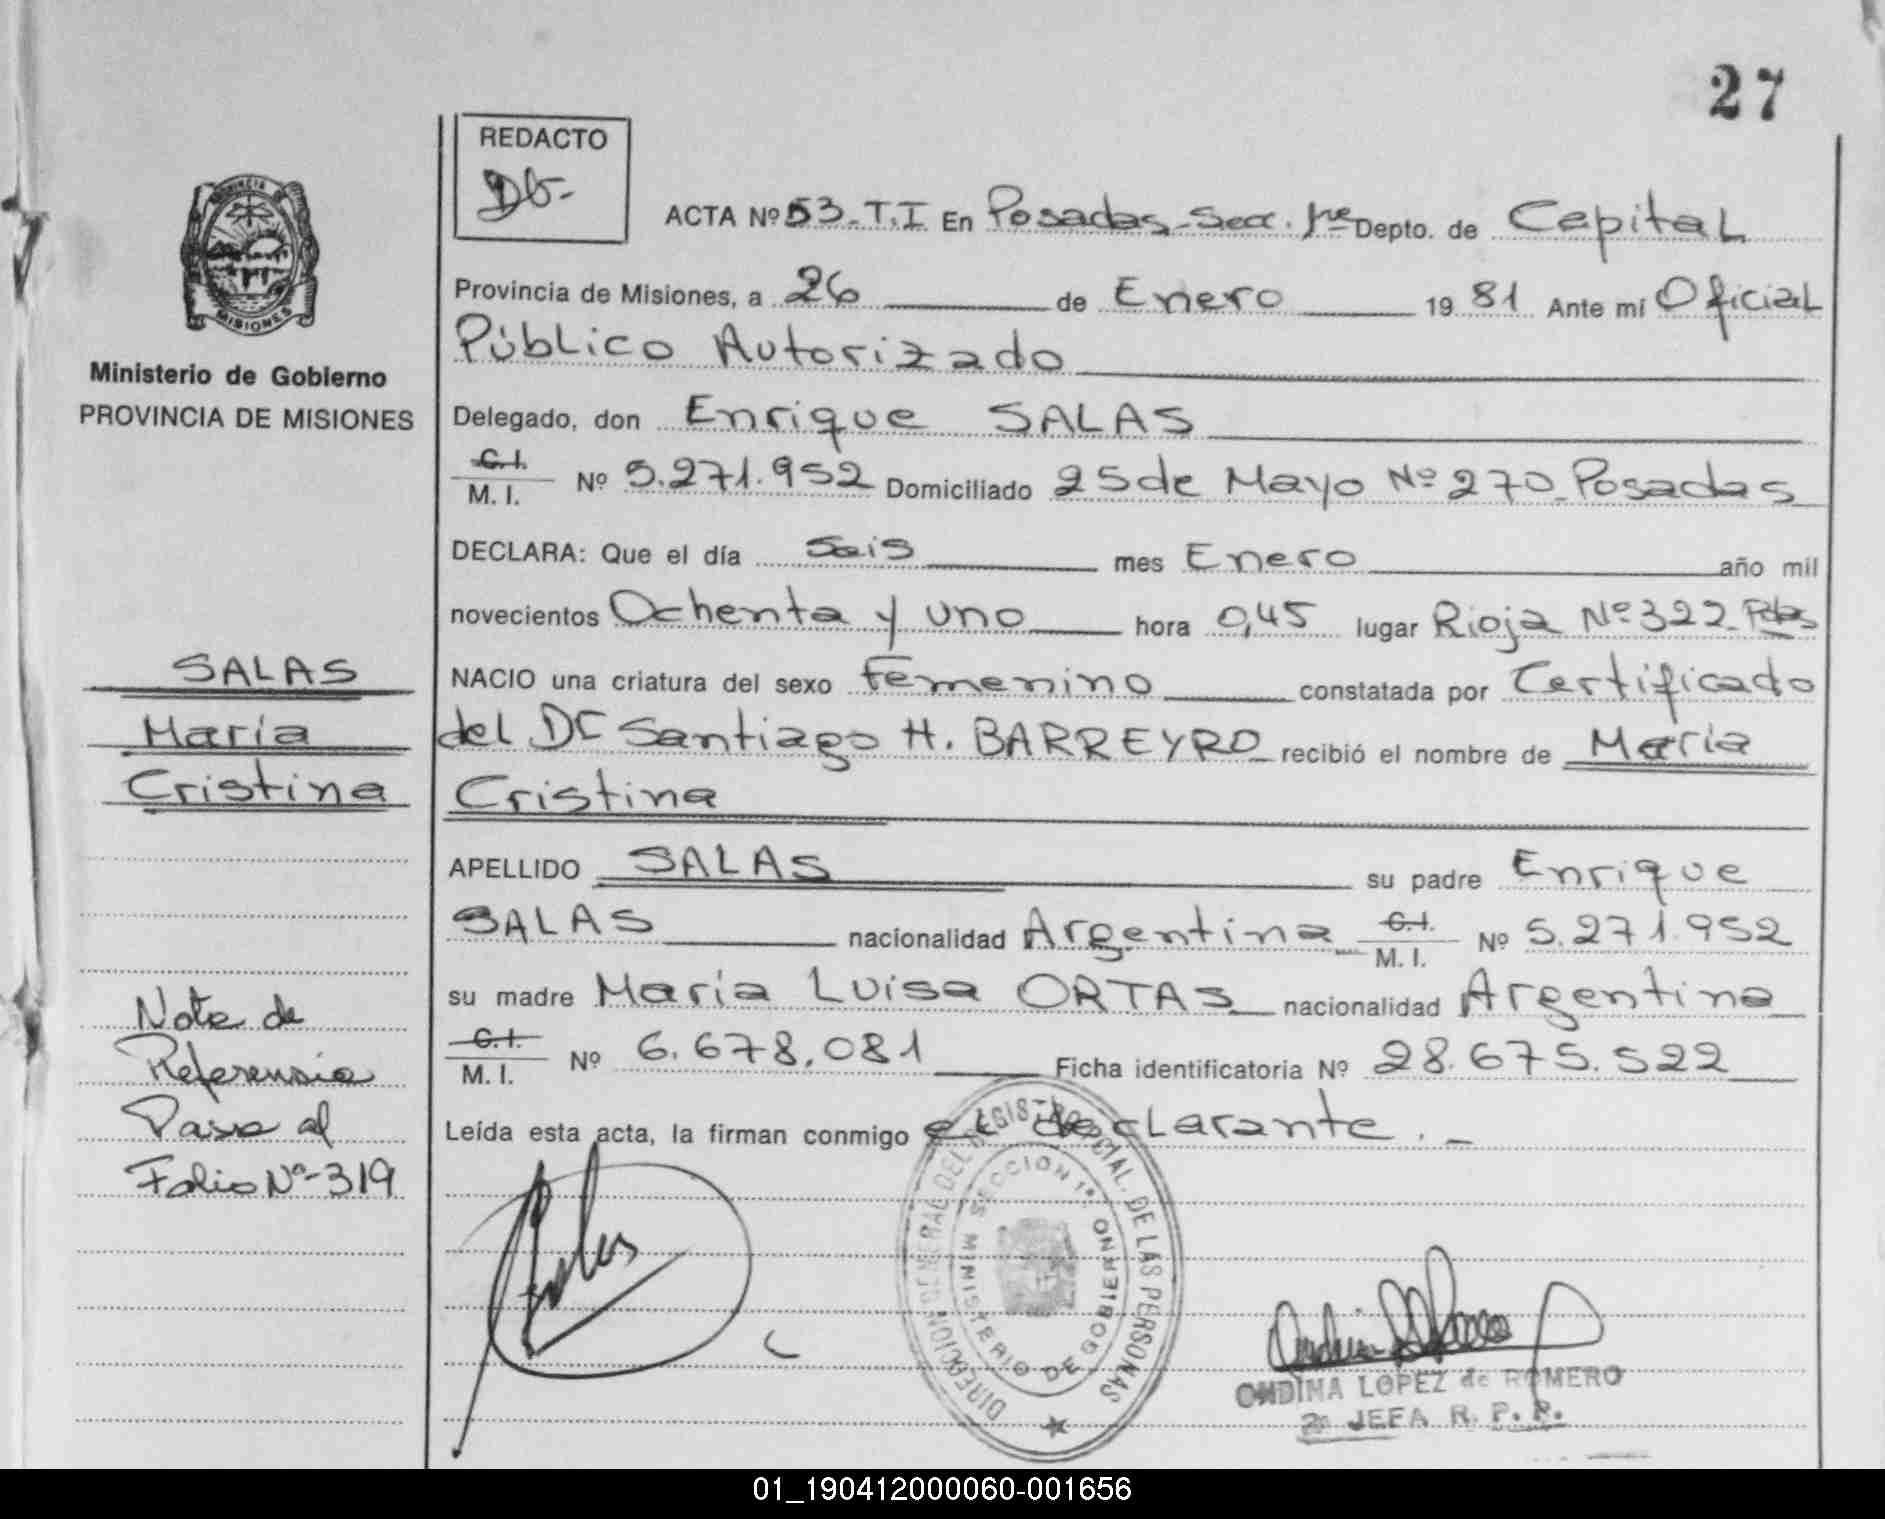 27
REDACTO
Db-
ACTA Nº 53-T.I En Posadas-Secc. 1re Depto. de Capital
PROVINCIA DE
MISIONES
Ministerio de Gobierno
PROVINCIA DE MISIONES
Provincia de Misiones, a 26 de Enero 1981 Ante mí Oficial
Público Autorizado
Delegado, don Enrique SALAS
C.I.
M. I. Nº 5.271.952 Domiciliado 25 de Mayo Nº 270-Posadas
DECLARA: Que el día Seis mes Enero año mil
novecientos Ochenta y uno hora 0,45 lugar Rioja Nº 322-Pdas
NACIO una criatura del sexo Femenino constatada por Certificado
del Dr Santiago H. BARREYRO recibió el nombre de María
Cristina
APELLIDO SALAS su padre Enrique
SALAS nacionalidad Argentina C.I.
M. I. Nº 5.271.952
su madre María Luisa ORTAS nacionalidad Argentina
C.I.
M. I. Nº 6.678.081 Ficha identificatoria Nº 28.675.522
Leída esta acta, la firman conmigo el declarante.-
SALAS
María
Cristina
Nota de
Referensia
Pasa al
Folio Nº-319
DIRECCION GENERAL DEL REGISTRO PCIAL. DE LAS PERSONAS
SECCION 1ª
MINISTERIO DE GOBIERNO
ONDINA LOPEZ de ROMERO
2ª JEFA R. P. P.
01_190412000060-001656